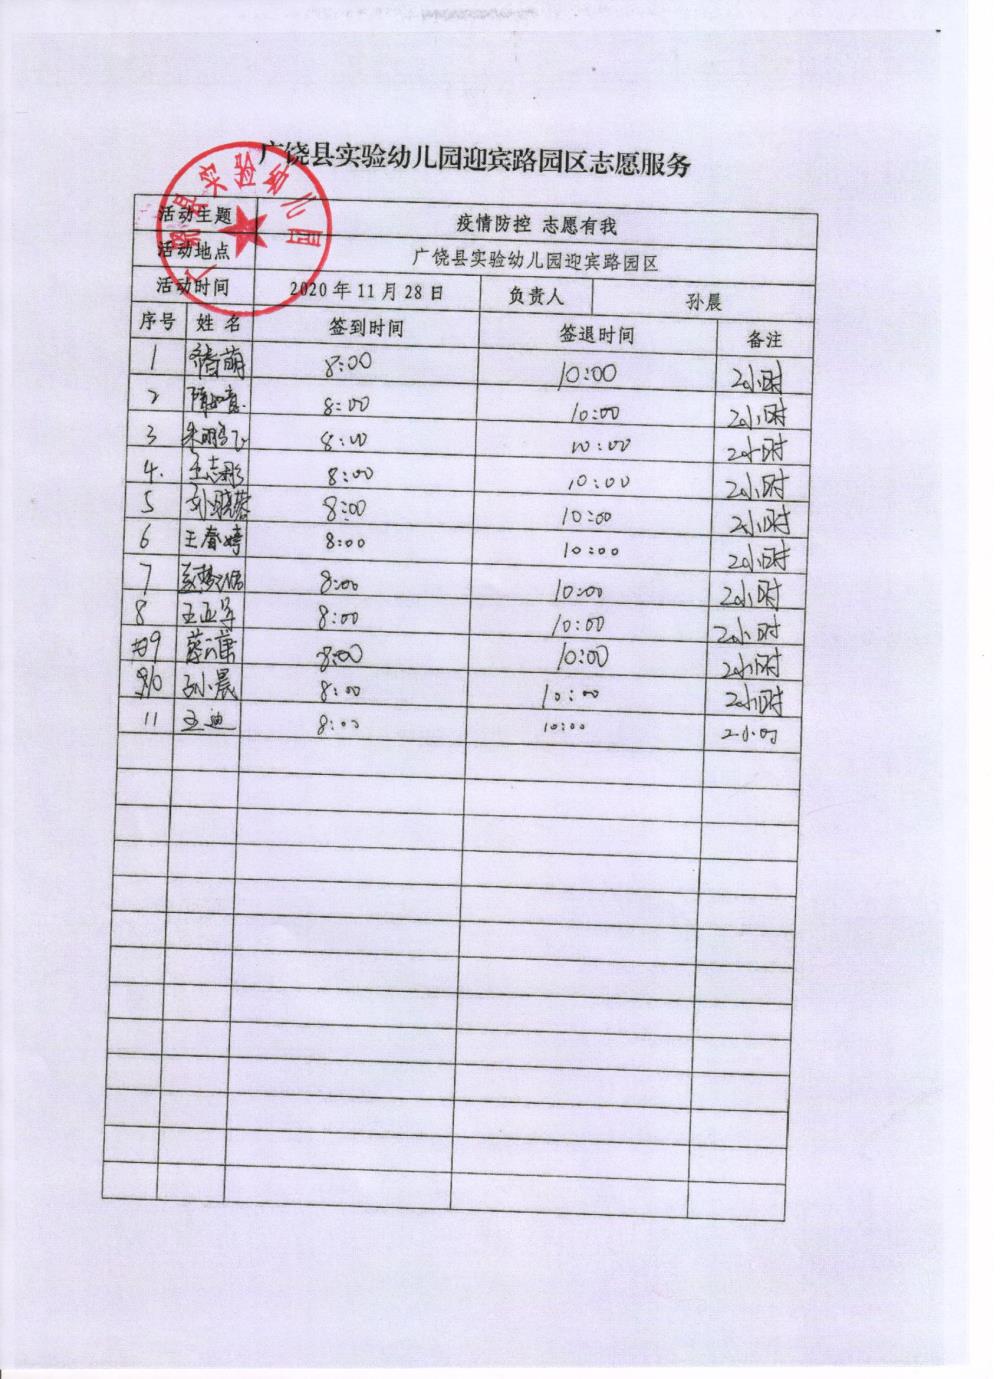 广饶县实验幼儿园迎宾路园区志愿服务
广饶县实验幼儿园
活动主题 疫情防控 志愿有我
活动地点 广饶县实验幼儿园迎宾路园区
活动时间 2020年11月28日 负责人 孙晨
序号 姓名 签到时间 签退时间 备注
1 萌 8:00 10:00 2小时
2 隋如意 8:00 10:00 2小时
3 朱鹏飞 8:00 10:00 2小时
4. 王志彤 8:00 10:00 2小时
5 孙晓蓉 8:00 10:00 2小时
6 王春婷 8:00 10:00 2小时
7 8:00 10:00 2小时
8 王亚军 8:00 10:00 2小时
9 8:00 10:00 2小时
10 孙小晨 8:00 10:00 2小时
11 王迪 8:00 10:00 2小时